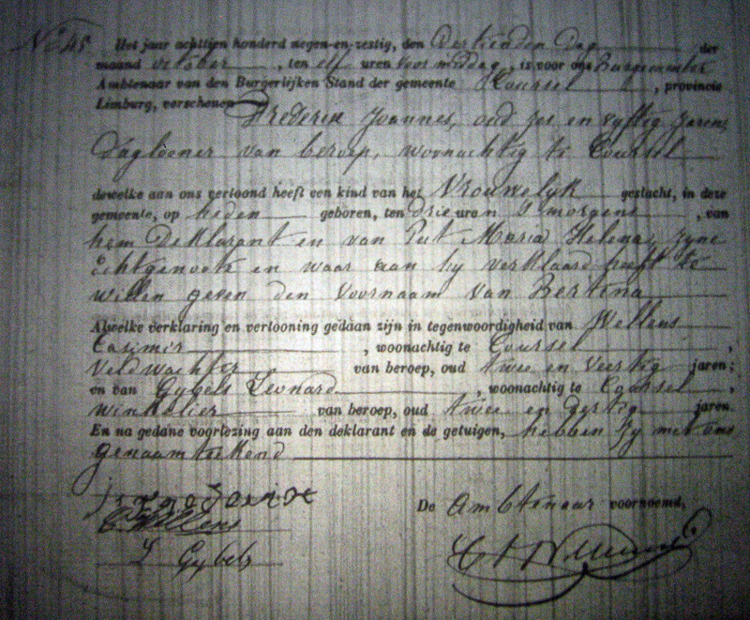 N° 45 Het jaar achttien honderd negen-en-zestig, den Dertienden Dag der
maand october, ten elf uren voor middag, is voor ons Burgemeester
Ambtenaar van den Burgerlijken Stand der gemeente Coursel, provincie
Limburg, verschenen Frederix Joannes, oud zes en vyftig jaren,
Daglooner van beroep, woonachtig te Coursel
dewelke aan ons vertoond heeft een kind van het Vrouwelyk geslacht, in deze
gemeente, op heden geboren, ten drie uren 's morgens, van
hem Deklarant en van Put Maria Helena, zyne
Echtgenoote en waar aan hy verklaard heeft te
willen geven den voornaam van Bertina
Alwelke verklaring en vertooning gedaan zijn in tegenwoordigheid van Wellens
Casimir, woonachtig te Coursel,
Veldwachter van beroep, oud twee en veertig jaren;
en van Gybels Leonard, woonachtig te Coursel,
winkelier van beroep, oud twee en dertig jaren.
En na gedane voorlezing aan den deklarant en de getuigen, hebben zy met ons
genaamteekend
C Wellens
L Gybels
De Ambtenaar voornoemd,